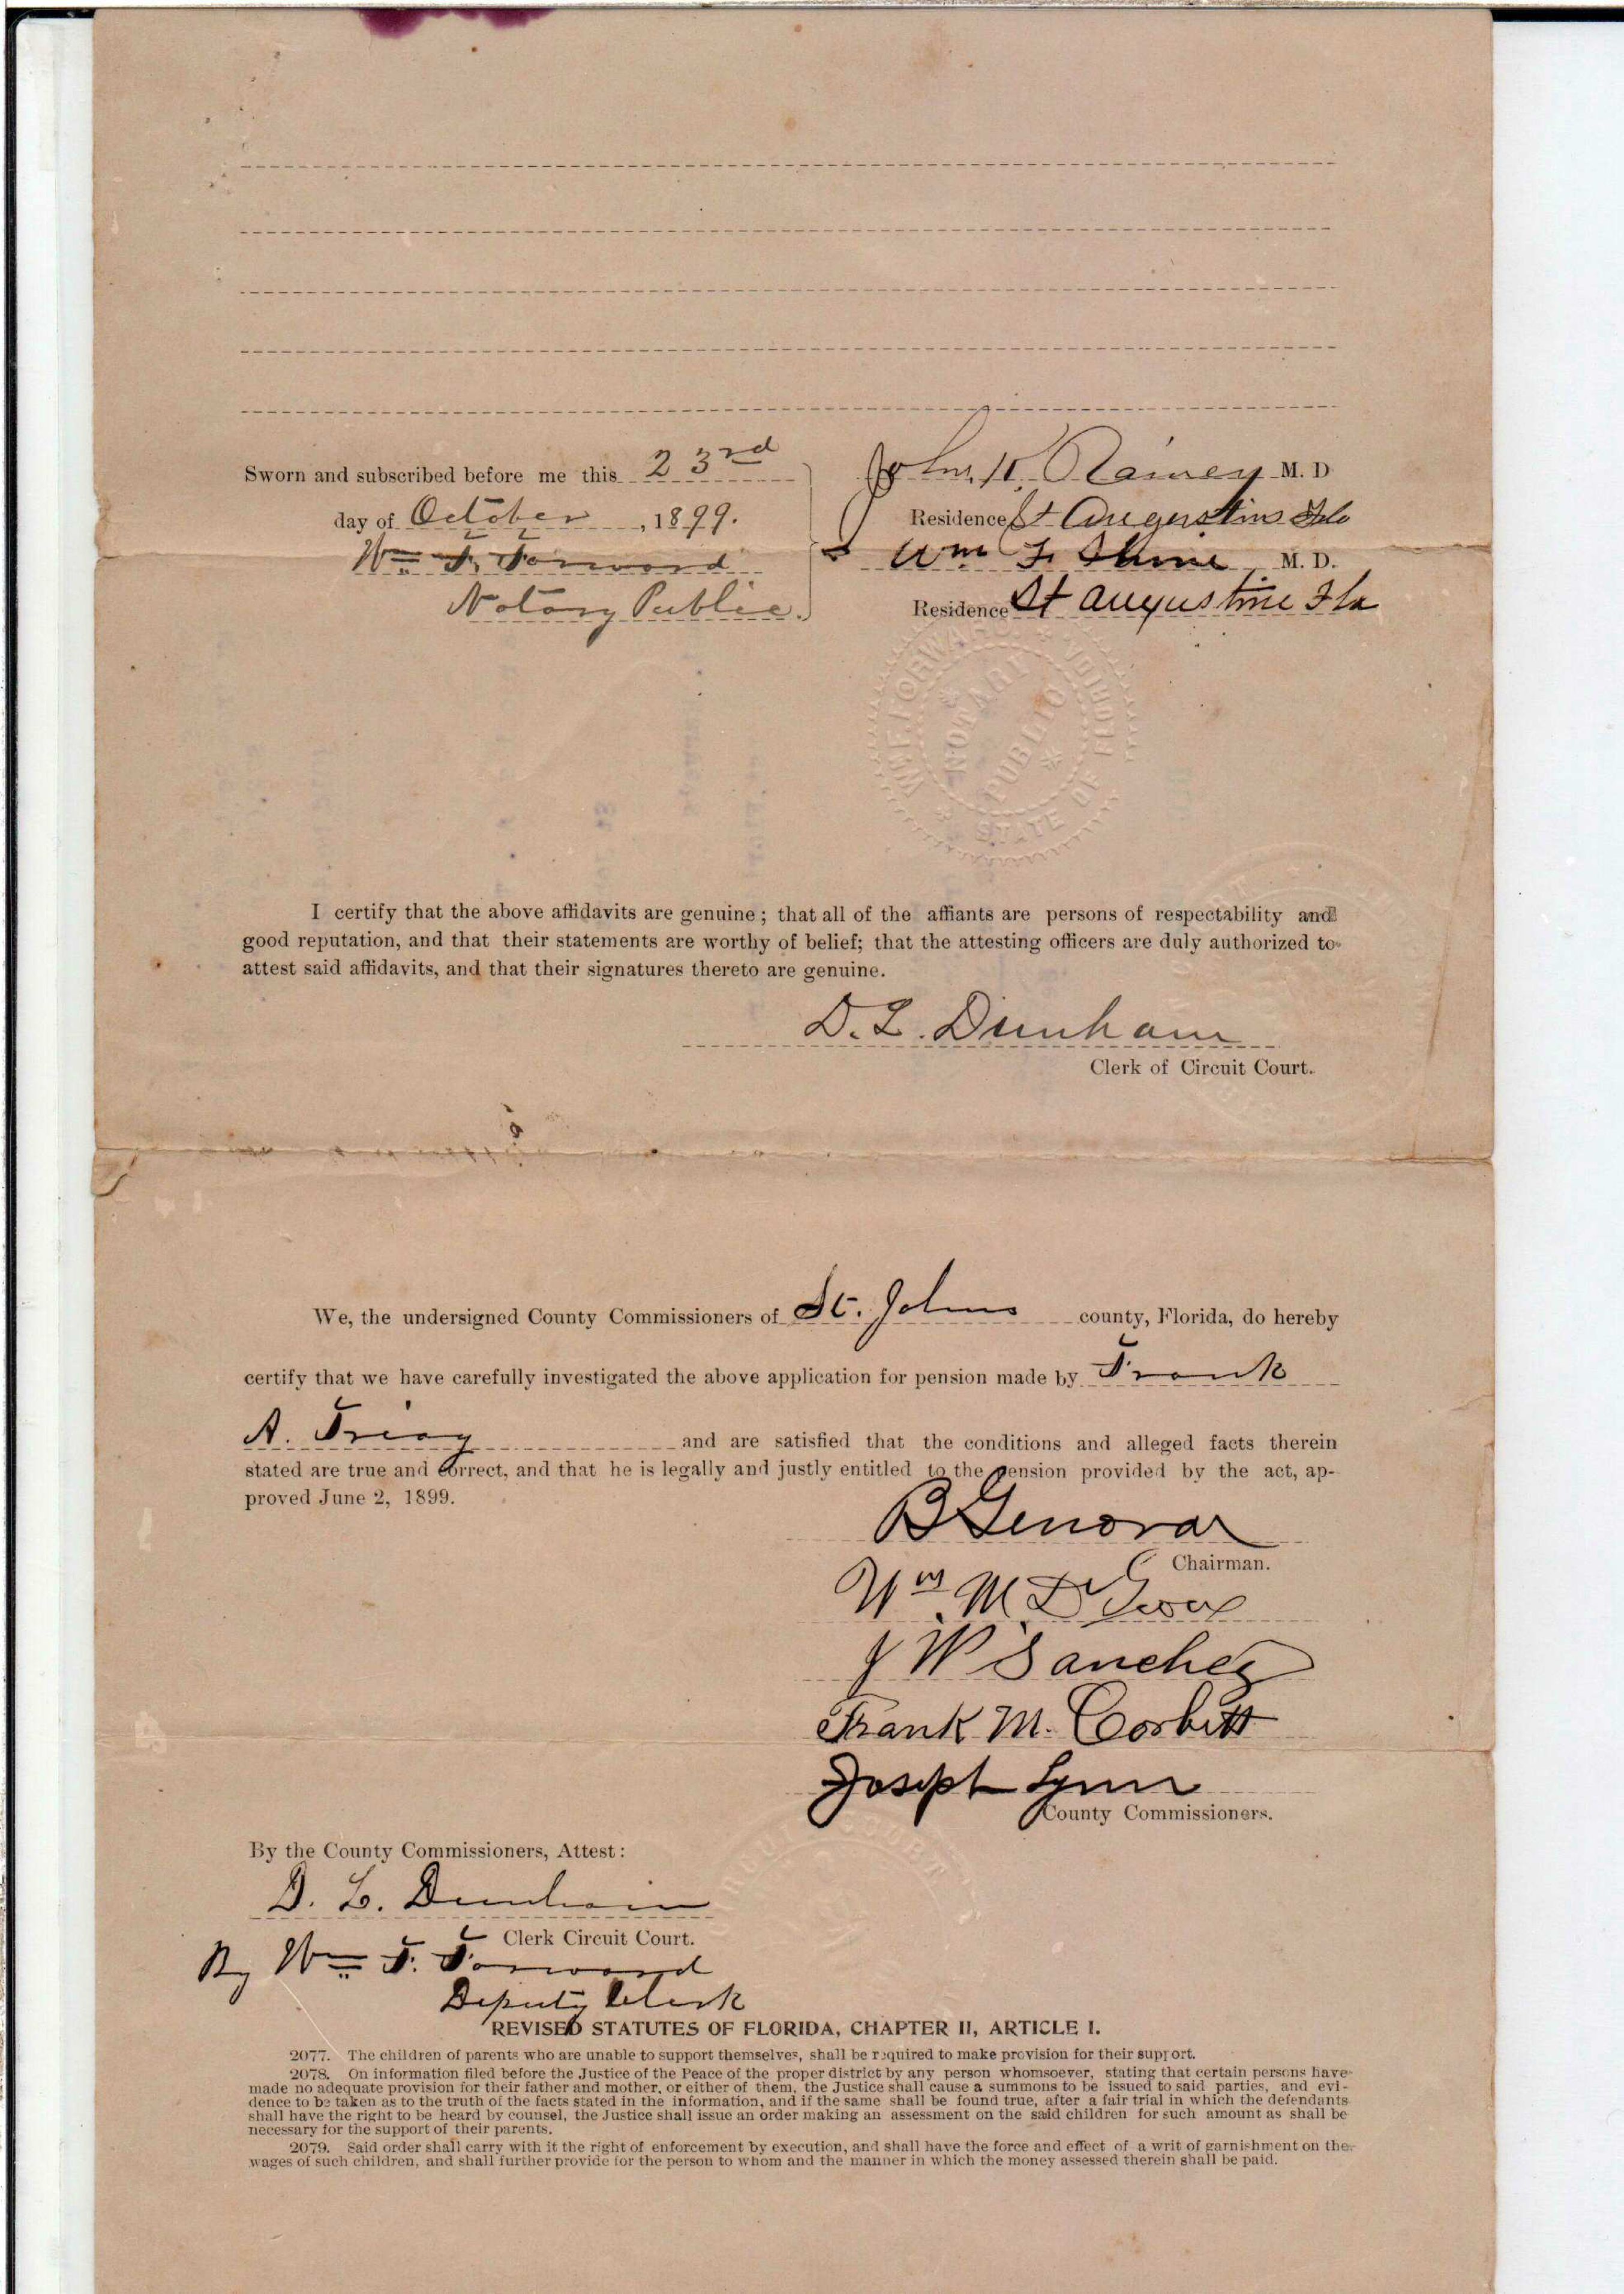 Sworn and subscribed before me this 23rd
day of October, 1899.
Wm. F. Forward
Notary Public.
John K. Rainey M. D
Residence St Augustine Fla
Wm F. Shine M. D.
Residence St Augustine Fla
WM. F. FORWARD
NOTARY PUBLIC
STATE OF FLORIDA
I certify that the above affidavits are genuine; that all of the affiants are persons of respectability and
good reputation, and that their statements are worthy of belief; that the attesting officers are duly authorized to
attest said affidavits, and that their signatures thereto are genuine.
D. L. Dunham
Clerk of Circuit Court.
We, the undersigned County Commissioners of St. Johns county, Florida, do hereby
certify that we have carefully investigated the above application for pension made by Frank
A. Triay and are satisfied that the conditions and alleged facts therein
stated are true and correct, and that he is legally and justly entitled to the pension provided by the act, ap-
proved June 2, 1899.
B Genovar
Chairman.
Wm. M.
J W Sanchez
Frank M. Corbett
Joseph Lynn
County Commissioners.
By the County Commissioners, Attest:
D. L. Dunham
Clerk Circuit Court.
By Wm. F. Forward
Deputy Clerk
REVISED STATUTES OF FLORIDA, CHAPTER II, ARTICLE I.
2077. The children of parents who are unable to support themselves, shall be required to make provision for their support.
2078. On information filed before the Justice of the Peace of the proper district by any person whomsoever, stating that certain persons have
made no adequate provision for their father and mother, or either of them, the Justice shall cause a summons to be issued to said parties, and evi-
dence to be taken as to the truth of the facts stated in the information, and if the same shall be found true, after a fair trial in which the defendants
shall have the right to be heard by counsel, the Justice shall issue an order making an assessment on the said children for such amount as shall be
necessary for the support of their parents.
2079. Said order shall carry with it the right of enforcement by execution, and shall have the force and effect of a writ of garnishment on the
wages of such children, and shall further provide for the person to whom and the manner in which the money assessed therein shall be paid.